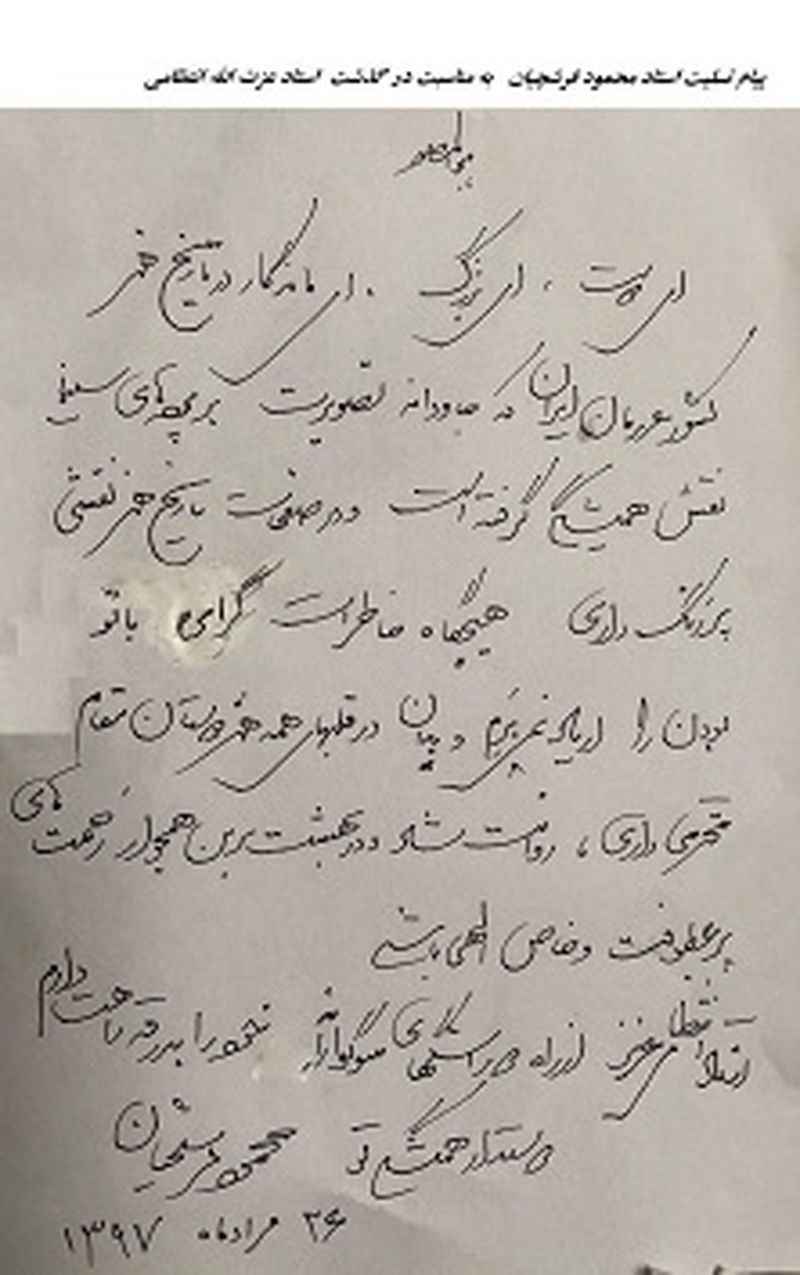 پیام تسلیت استاد محمود فرشچیان به مناسبت درگذشت استاد عزت الله انتظامی
هوالمصور
ای دوست ، ای بزرگ . ای ماندگار در تاریخ هنر
کشور عزیزمان ایران که جاودانه تصویرت بر پرده‌های سینما
نقش همیشگی گرفته است و در صفحات تاریخ هنر نقشی
پررنگ داری هیچگاه خاطرات گرامی با تو
بودن را از یاد نمی‌برم و بدان در قلبهای همه هنردوستان مقام
محترمی داری ، روانت شاد و در بهشت برین همجوار رحمت‌های
پر عطوفت و خاص الهی باشی
استاد انتظامی عزیز از راه دور اشکهای سوگوارانه خود را بدرقه راهت دارم
دوستدار همیشگی تو محمود فرشچیان
۲۶ مرداد ماه ۱۳۹۷